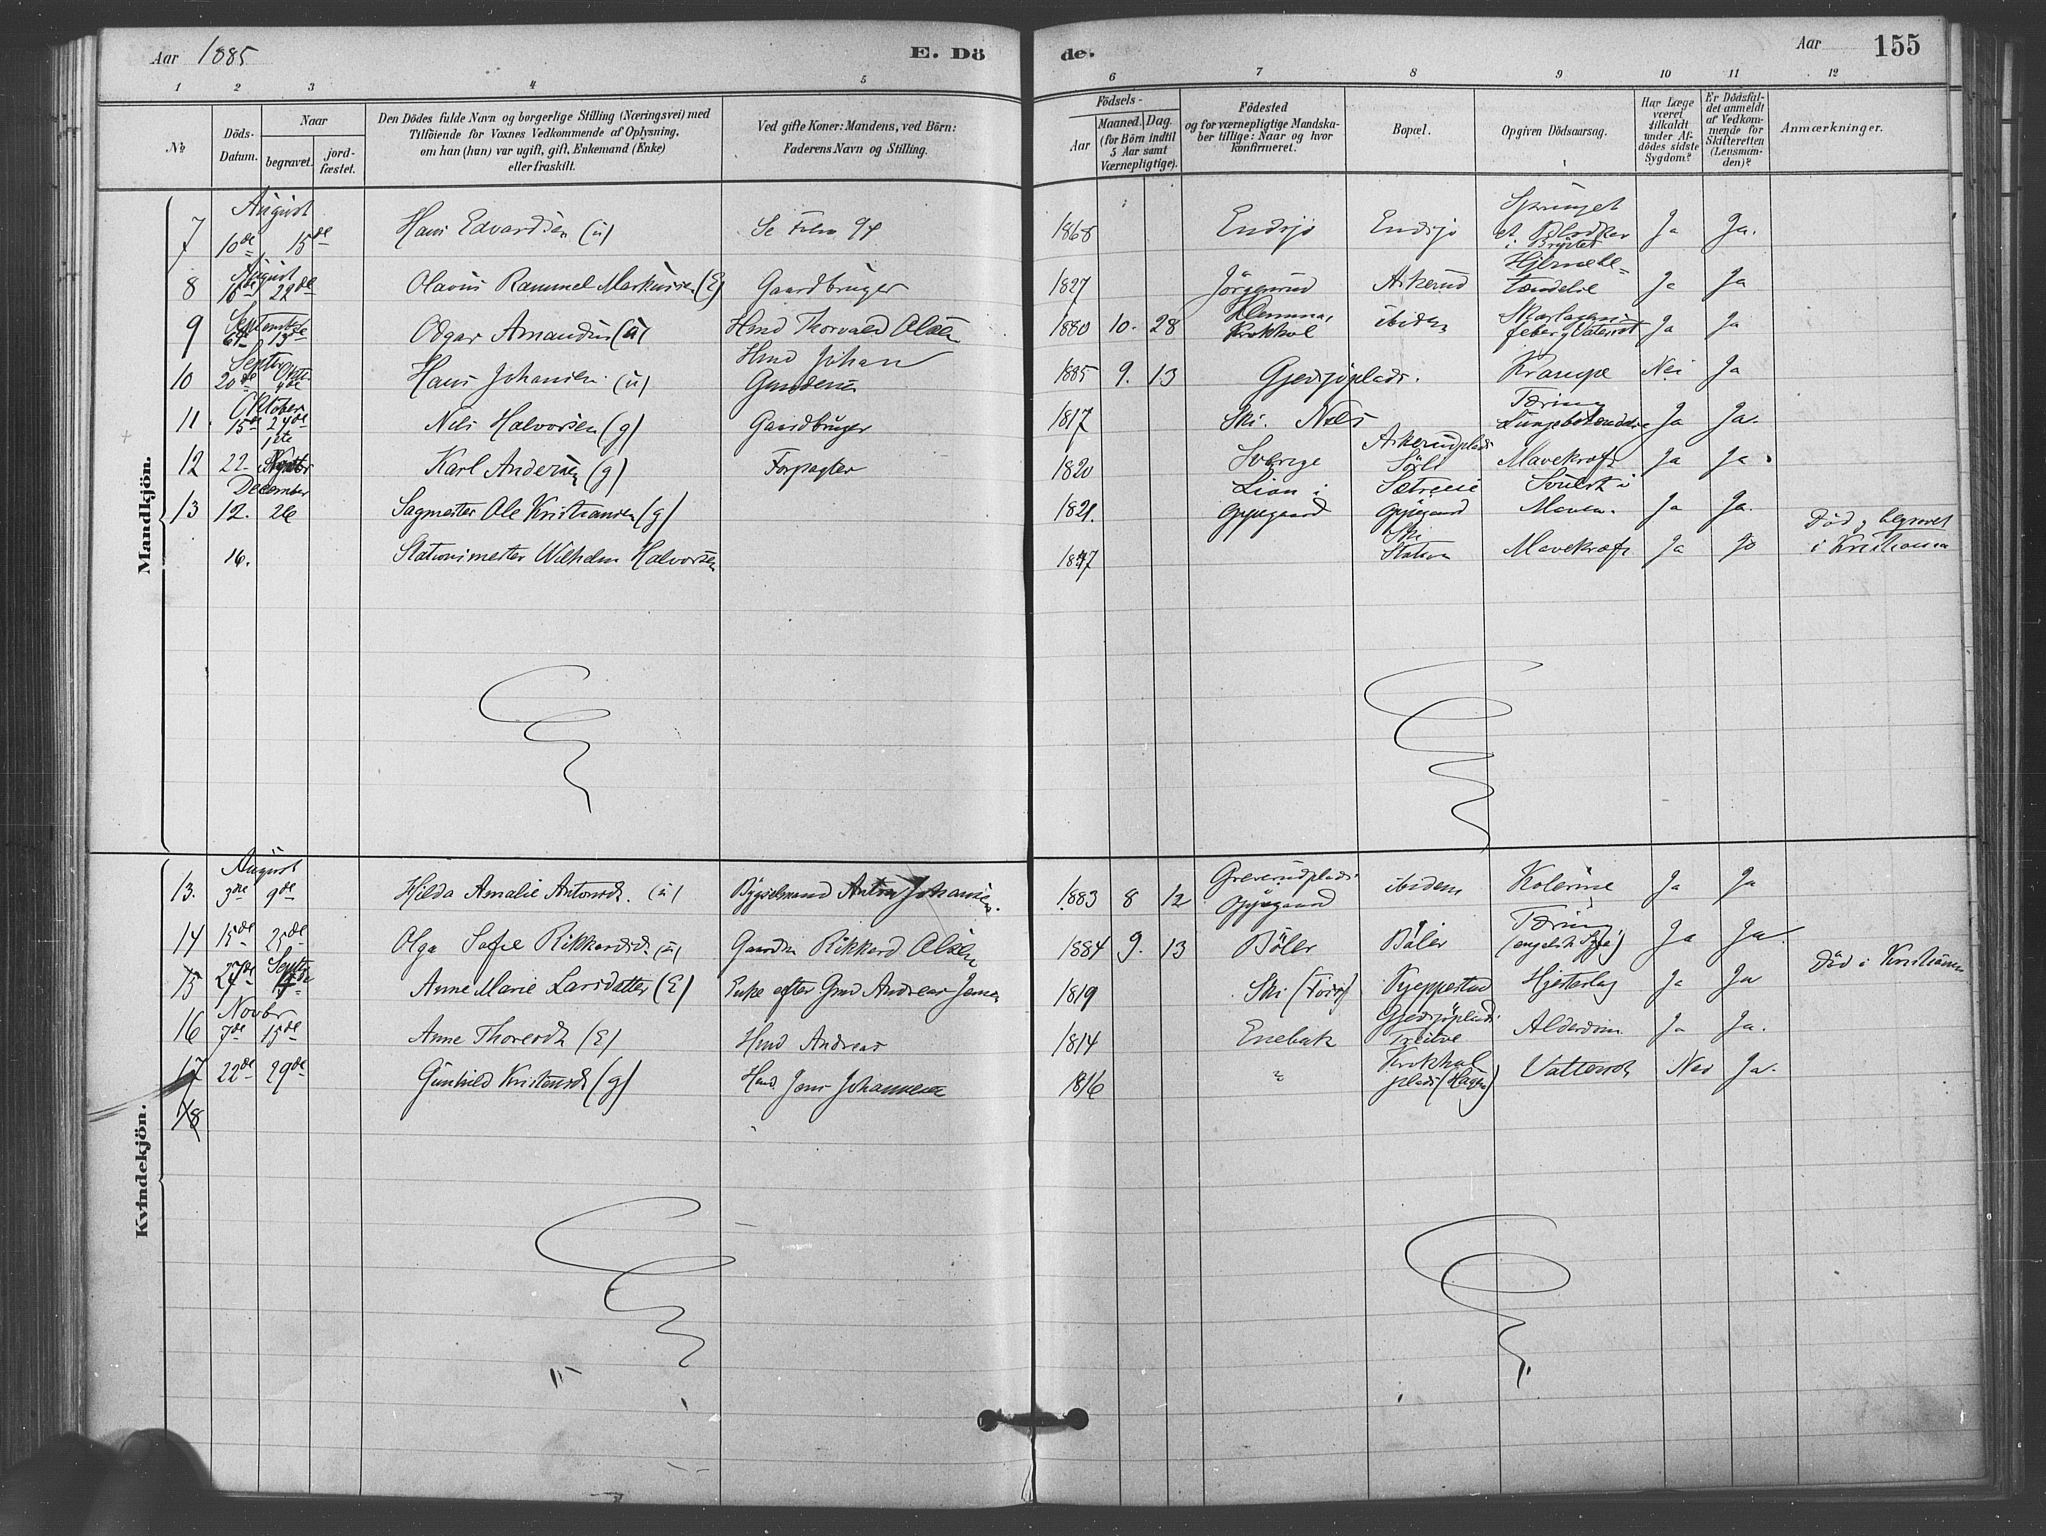 Aar 1885 E. Dö de. Aar 155
1 2 3 4 5 6 7 8 9 10 11 12
№
Döds-Datum.
Naar
begravet. jord-fæstet.
Den Dödes fulde Navn og borgerlige Stilling (Næringsvei) med
Tilföiende for Voxnes Vedkommende af Oplysning,
om han (hun) var ugift, gift, Enkemand (Enke)
eller fraskilt.
Ved gifte Koner: Mandens, ved Börn:
Faderens Navn og Stilling.
Födsels-
Aar Maaned. Dag.
(for Börn indtil
5 Aar samt
Værnepligtige).
Födested
og for værnepligtige Mandska-
ber tillige: Naar og hvor
konfirmeret.
Bopæl.
Opgiven Dödsaarsag.
Har Læge
været
tilkaldt
under Af-
dödes sidste
Sygdom?
Er Dödsfal-
det anmeldt
af Vedkom-
mende for
Skifteretten
(Lensman-
den)?
Anmærkninger.
Mandkjön.
August
7 10de 15de Hans Edvardsen (u) Se Folio 94 1868 Endsjø Endsjø Sprunget et Blodkar i Brystet Ja Ja.
August
8 16de 22de Olavus Rammel Markussen (E) Gaardbruger 1827 Jörgenrud Askerud Hjernebe-tændelse Ja Ja
Septembr
9 6te 13de Odgar Amandus (u) Hmd Thorvald Olsen 1880 10. 28 Krokhol ibidem Skarlagens-feber og Vatersot Ja Ja
Septbr
10 20de 4de Hans Johansen (u) Hmd Johan Gundersen 1885 9. 13 Gjedsjöplads. Krampe Nei Ja
Oktober
11. 15de 24de Nils Halvorsen (g) Gaardbruger 1817 Ski. Tæring Lungebetændelse Ja Ja.
12 22. 1ste Novbr Karl Andersen (g) Forpagter 1820 Sverige Askerudplads Mavekræft Ja Ja.
December
13 12. 26 Sagmester Ole Kristiansen (g) 1821. Lian i Oppegaard Sætreeie Oppegaard Svulst i Maven. Ja Ja.
16. Stationsmester Wilhelm Halvorsen 1847 Ski Station Mavekræft Ja Ja Död og begravet i Kristiania
Kvindekjön.
August
13. 3de 9de Hilda Amalie Antonsd. (u) Bygselmand Anton Johansen. 1883 8 12 Greverudplads Oppegaard ibidem Kolerine Ja Ja
14 15de 25de Olga Sofie Rikkardsd. (u) Gaardm Rikkard Olsen 1884 9. 13 Böler Böler Tæring (engelsk Syge) Ja Ja.
15 27de Septbr Anne Marie Larsdatter (E) Enke efter Gmd Andreas Jensen 1819 Ski Kjeppestad Hjerteslag Ja Ja Död i Kristiania
Novbr
16 7de 15de Anne Thoresdt. (E) Hmd Andreas 1814 Enebak Gjedsjöplads Alderdom Ja Ja.
17 22de 29de Gunhild Kristensdt (g) Hmd Jens Johannesen 1816 " Krokhol plads (Hagen) Vattersot Nei Ja.
18